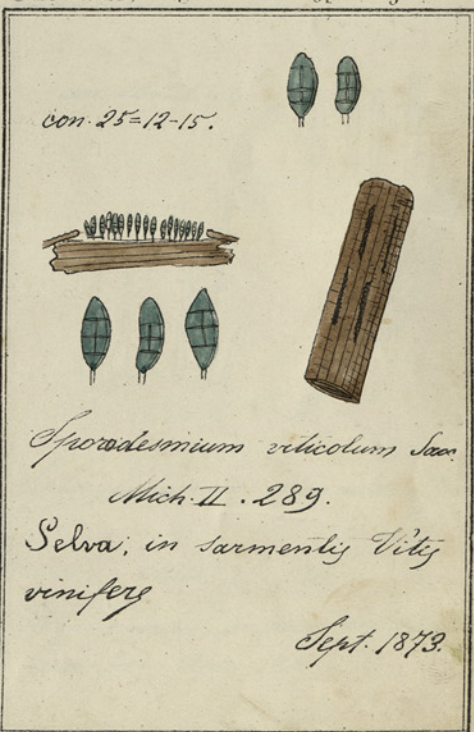 con. 25=12-15.
Sporodesmium viticolum Sacc.
Mich. II. 289.
Selva; in sarmentis Vitis
viniferę
Sept. 1873.